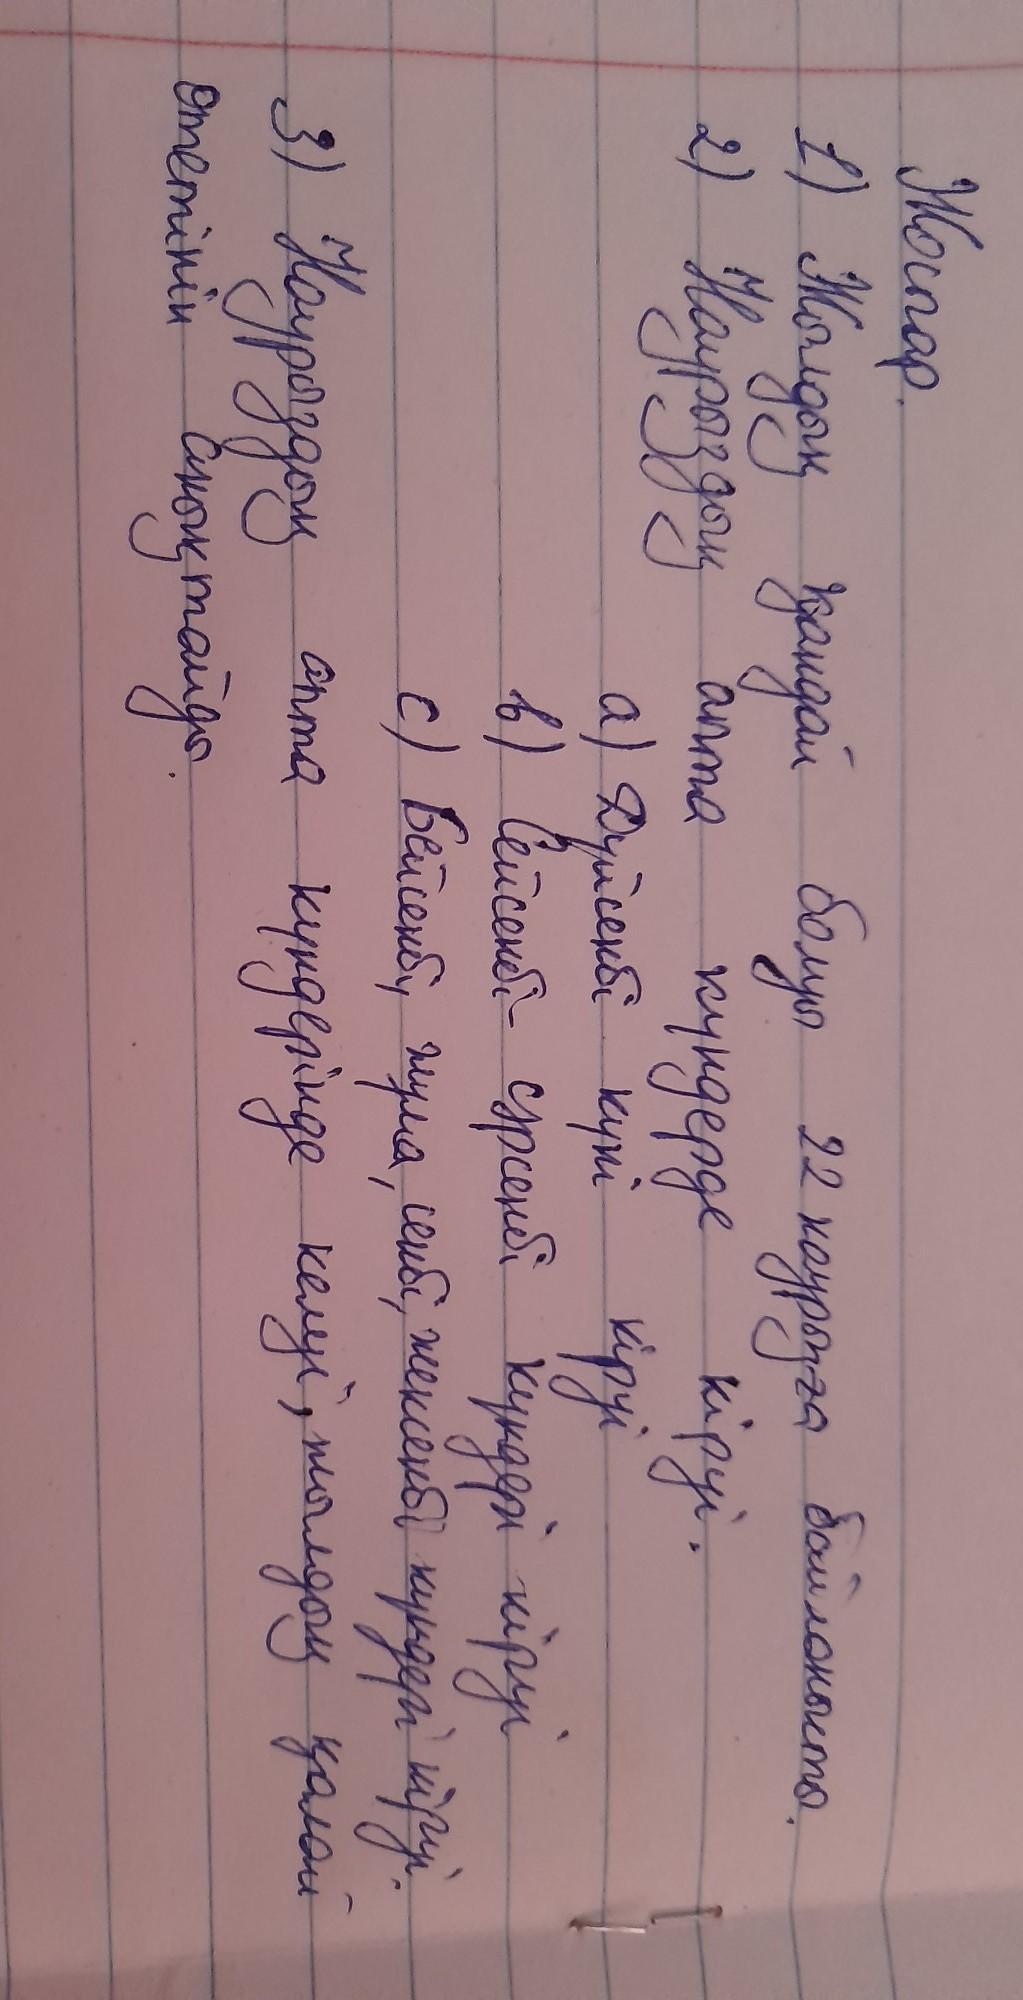 Жоспар.
1) Жылдың қандай болуы 22 наурызға байланысты.
2) Наурыздың апта күндерде кіруі.
а) Дүйсенбі күні кіруі
в) Сейсенбі- сәрсенбі күндері кіруі
с) Бейсенбі, жұма, сенбі, жексенбі күндері кіруі.
3) Наурыздың апта күндерінде келуі, жылдың қалай
өтетінін анықтайды.